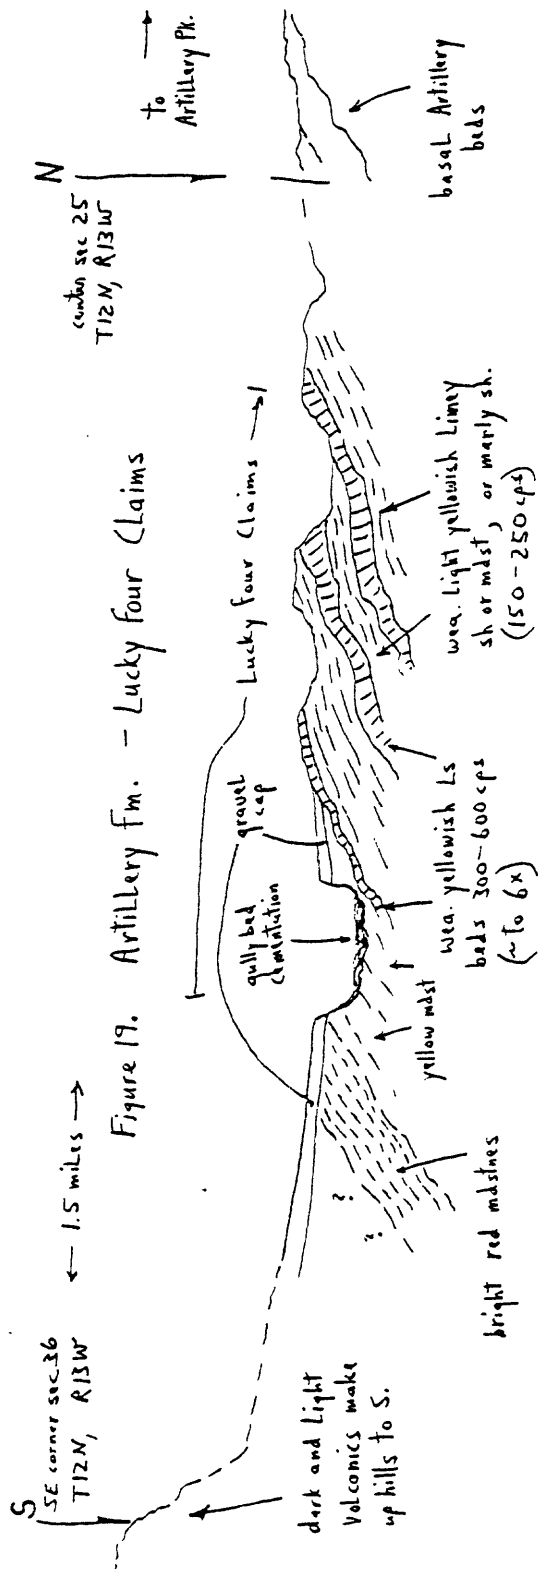 Figure 19. Artillery Fm. - Lucky Four Claims
S
SE corner sec 36
T12N, R13W
← 1.5 miles →
N
center sec 25
T12N, R13W
to
Artillery Pk.
Lucky Four Claims
gravel
cap
gully bed
cementation
? ?
dark and Light
Volcanics make
up hills to S.
bright red mdstnes
yellow mdst
wea. yellowish Ls
beds 300-600 cps
(~ to 6x)
wea. Light yellowish Limey
sh or mdst, or marly sh.
(150-250 cps)
basal Artillery
beds